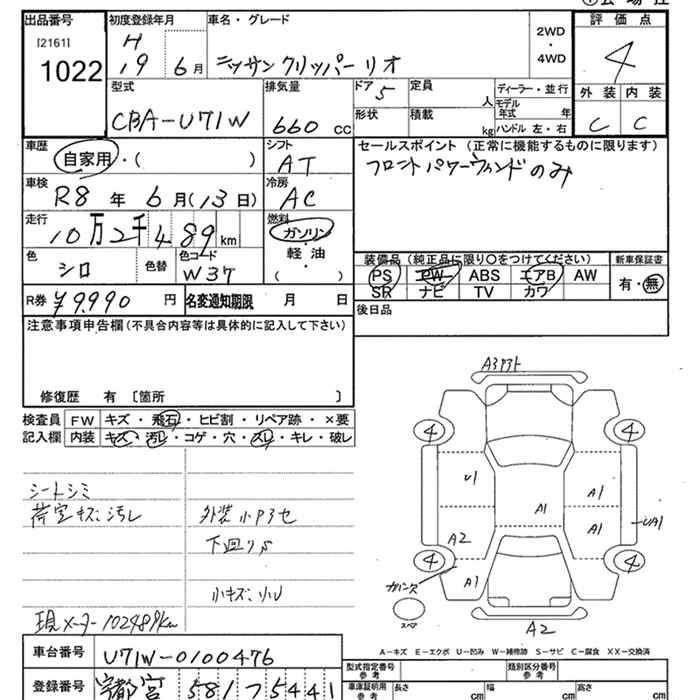 出品番号
[2161]
1022
初度登録年月
H
19 6月
車名・グレード
ニッサン クリッパーリオ
2WD
・
4WD
評価点
4
外装 内装
C C
型式
CBA-U71W
排気量
660 cc
ドア
5
定員
人
形状
積載
kg
ディーラー・並行
モデル
年式 年
ハンドル 左・右
車歴
自家用・( )
シフト
AT
車検
R8 年 6月(13日)
冷房
AC
走行
10万2千489 km
燃料
ガソリン
・
軽油
( )
色
シロ
色替
色コード
W37
R券 ¥9,990 円
名変通知期限 月 日
セールスポイント (正常に機能するものに限ります)
フロントパワーウィンドのみ
装備品 (純正品に限り○をつけてください)
PS PW ABS エアB AW
SR ナビ TV カワ
新車保証書
有・無
後日品
注意事項申告欄(不具合内容等は具体的に記入して下さい)
修復歴 有 〔箇所 〕
検査員
記入欄
FW キズ・飛石・ヒビ割・リペア跡・×要
内装 キズ・汚レ・コゲ・穴・スレ・キレ・破レ
シートシミ
荷室キズ汚レ
外装小P3セ
下回りS
小キズ・小U
現メーター102489km
A3アト
4
4
4
4
U1
A1
A1
A2
A1
UA1
A1
ガバンス
スペア
A2
A-キズ E-エクボ U-凹み W-補修跡 S-サビ C-腐食 XX-交換済
車台番号 U71W-0100476
登録番号 宇都宮 581 フ 5441
型式指定番号
参考
類別区分番号
参考
車庫証明用
参考
長さ cm
幅 cm
高さ cm